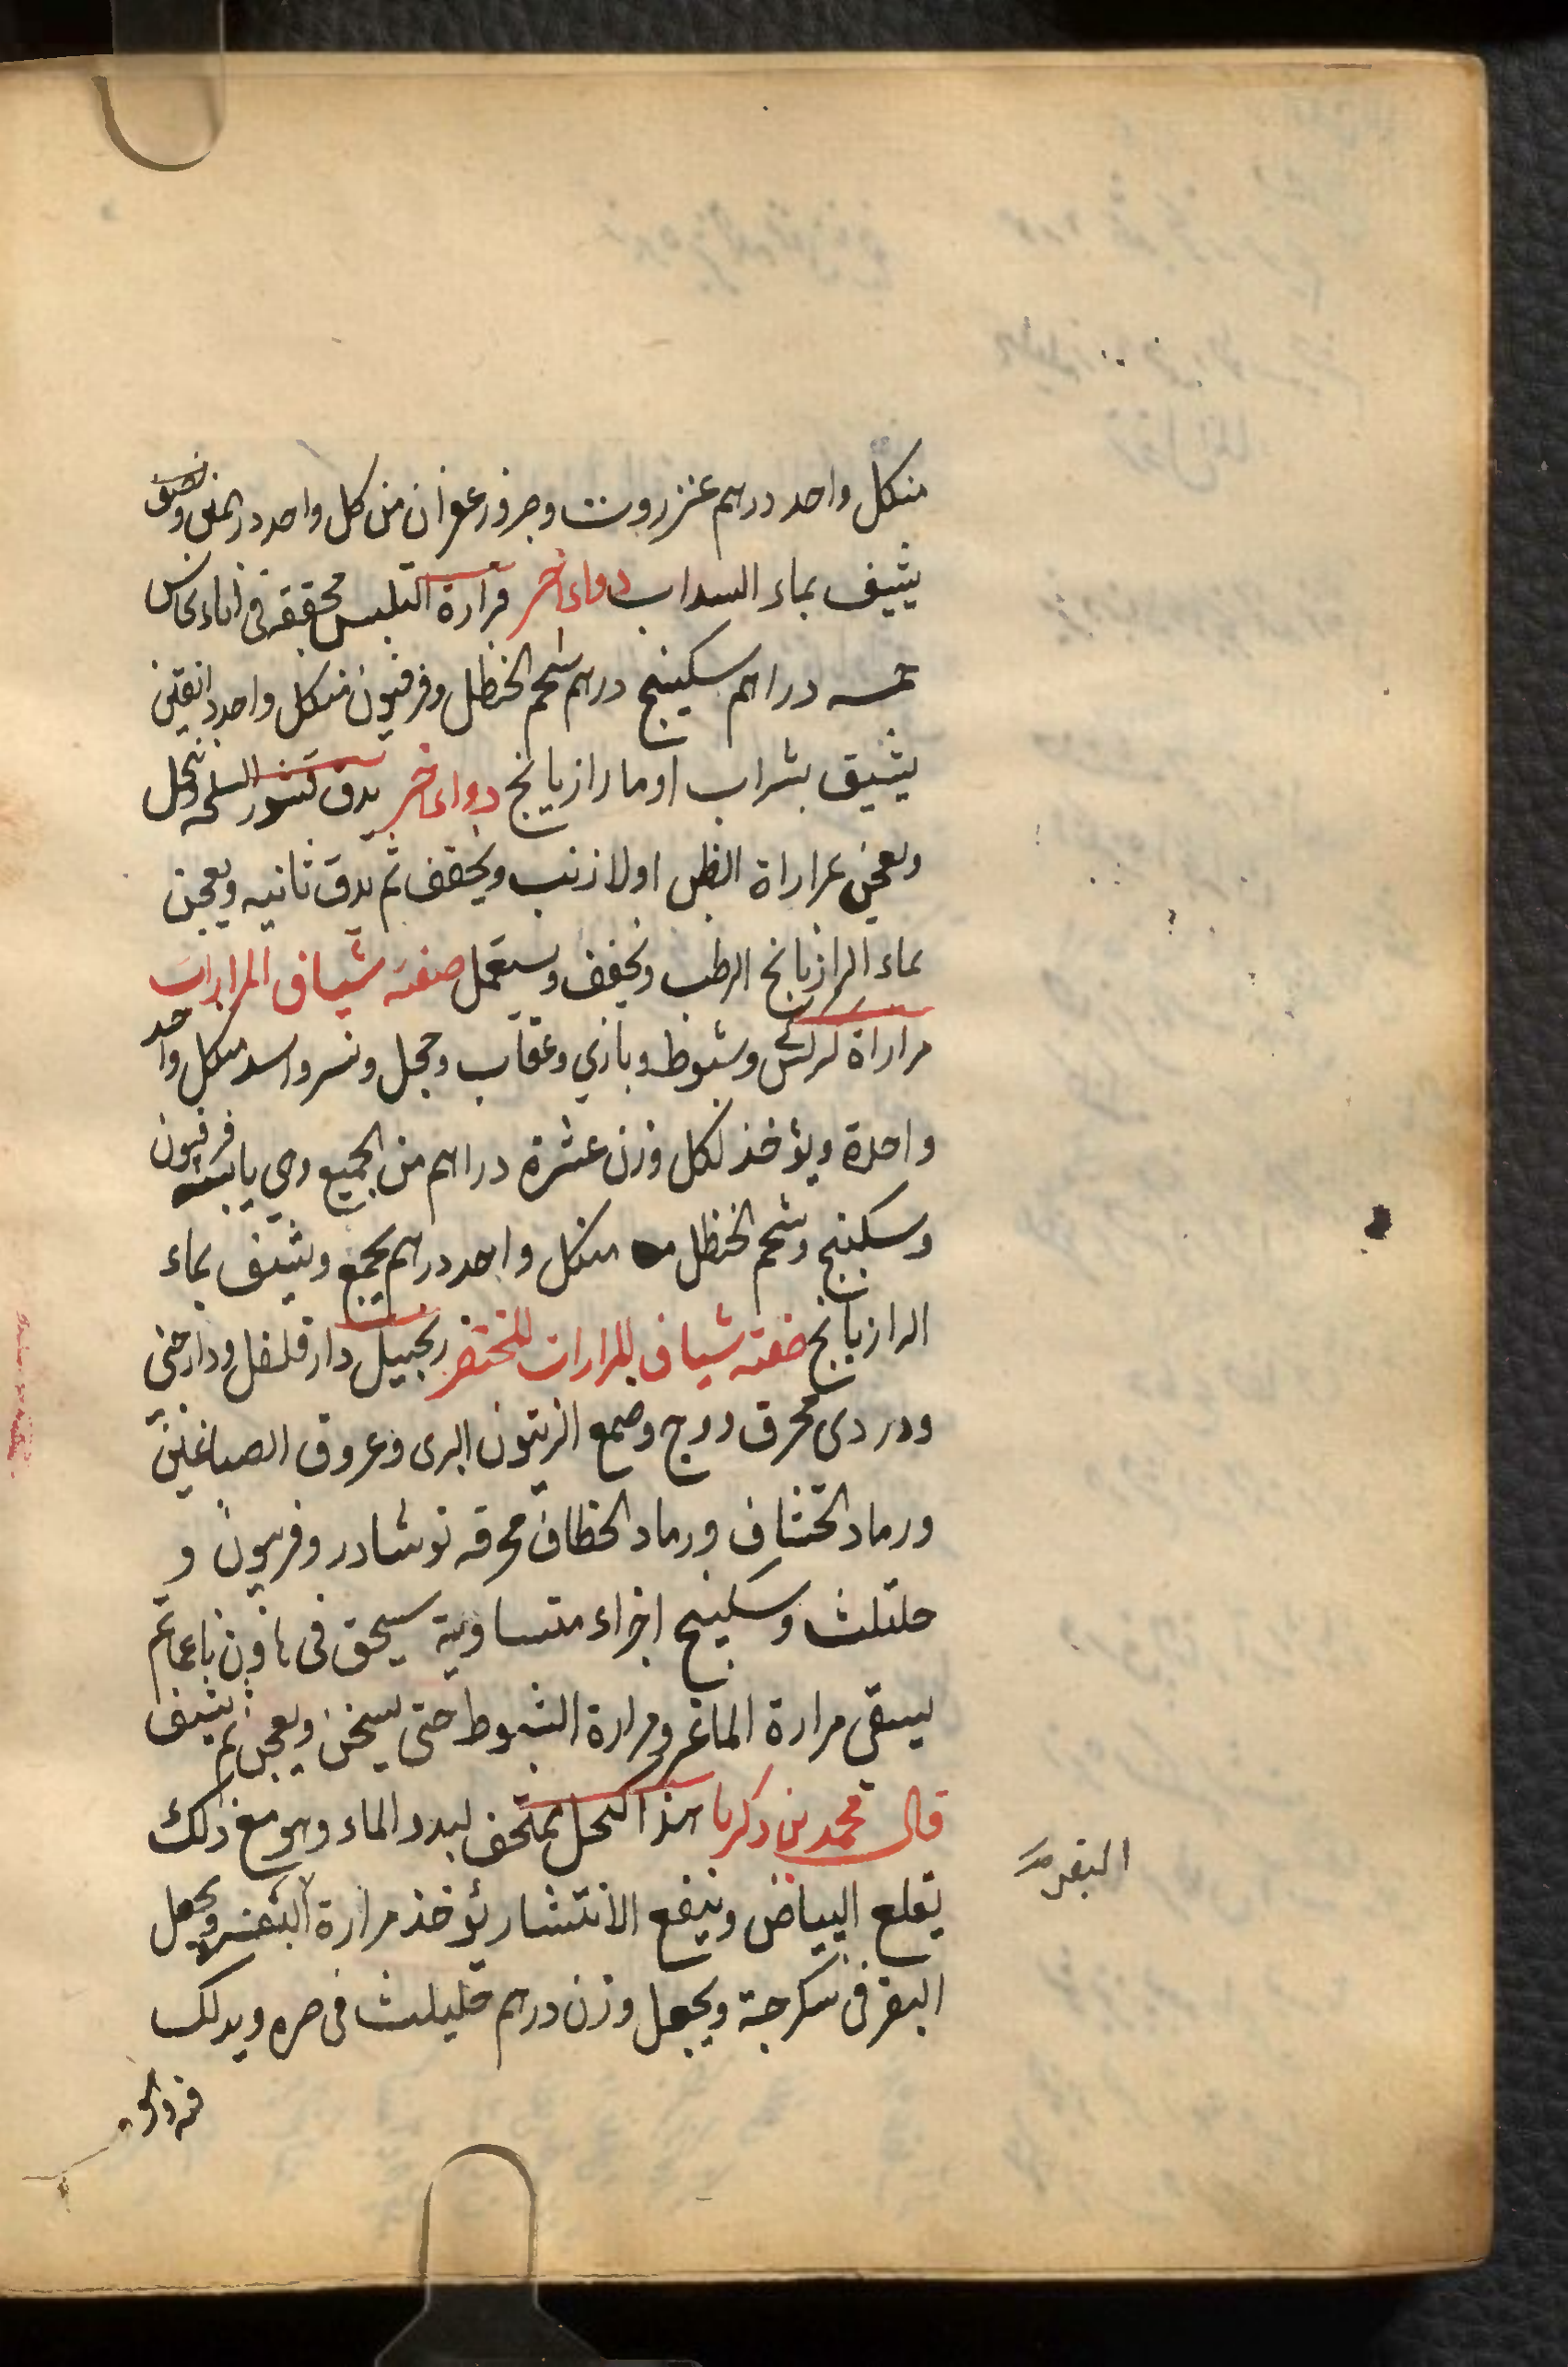 منكل واحد درهم عنزروت وجزو زعفران من كل واحد درهمين ونصف
يشيف بماء السداب دواء اخر مرارة التلبس محققه فى اناء نحاس
خمسه دراهم سكبينج درهم شحم الحنظل وفرفيون منكل واحد دانقين
يشيق بشراب او ما رازيانج دواء اخر يدق قشور السلحه وتنخل
ويعجن بمراراة الظبى اولا زنب ويجفف ثم يدق ثانيه ويعجن
بماء الرازيانج الرطب ويجفف ويستعمل صفته شياف المرارات
مراراة كركى وشبوط وبازي وعقاب وحجل ونسر واسد منكل واحد
واحدة ويؤخذ لكل وزن عشرة دراهم من الجميع وهي يابسة فرفيون
وسكبينج وشحم الحنظل منكل واحد درهم يجمع ويشيف بماء
الرازيانج صفته شياف المرارات المختصر زنجبيل دارفلفل ودارصينى
ودردى محرق ووج وصمغ الزيتون البرى وعروق الصباغين
ورماد الخشاف ورماد الخطاف محرقه نوشادر وفربيون و
حلتلث وسكبينج اجزاء متساوية يسحق فى هاون ناعما ثم
يسقى مرارة الماعز ومرارة الشبوط حتى يسخن ويعجن ثم يشيف
قال محمد بن زكريا هذا الكحل يمتحف لبدد الماء وهو مع ذلك
يقلع البياض وينفع الانتشار يؤخذ مرارة ويجعل
البقر فى سكرجة ويجعل وزن درهم حليلث فى صره ويدلك
البقر